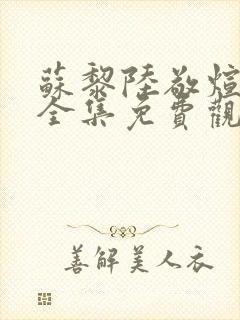 蘇黎陸敬煊
全集免費觀
善解美人衣